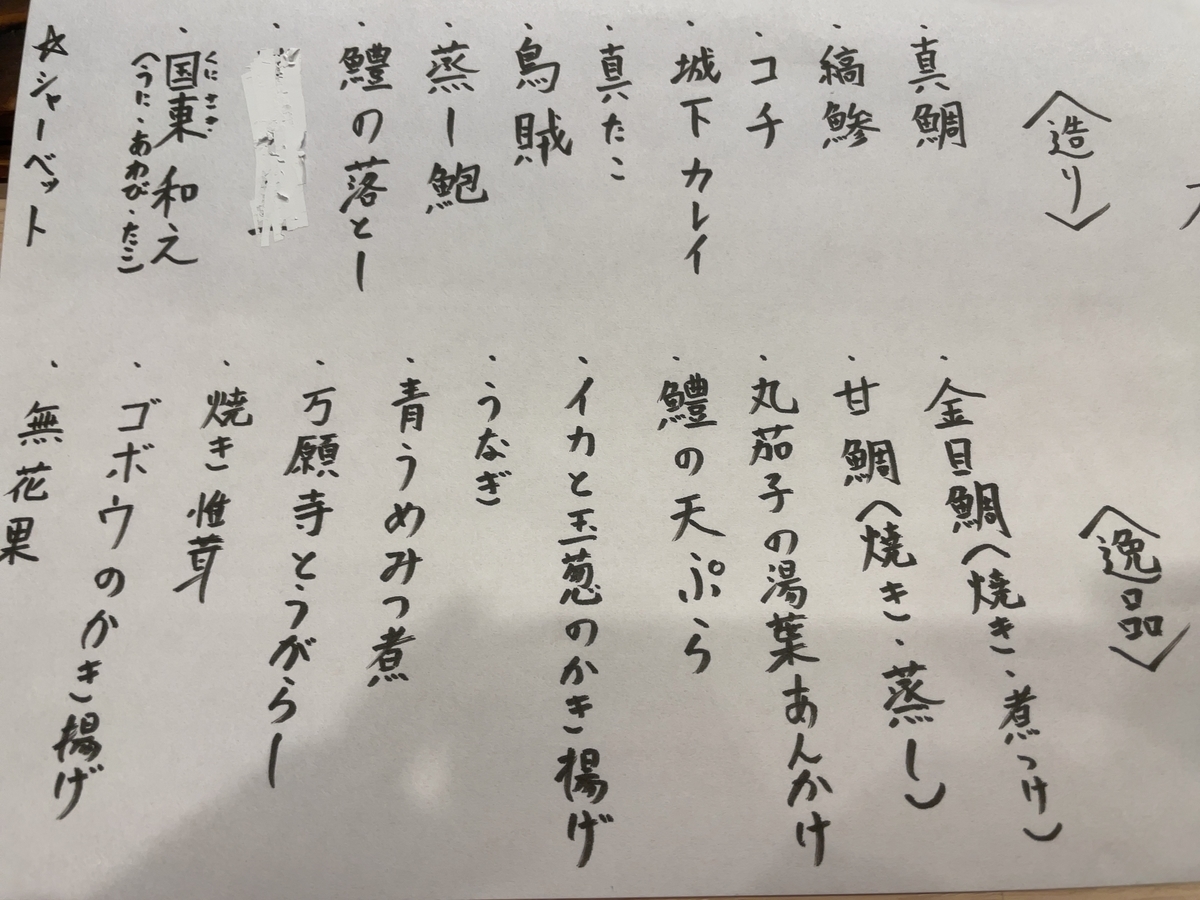 〈造り〉
・真鯛
・縞鯵
・コチ
・城下カレイ
・真たこ
・烏賊
・蒸し鮑
・鱧の落とし
・国東和え
くにさき
(うに・あわび・たこ)
☆シャーベット
〈逸品〉
・金目鯛(焼き・煮つけ)
・甘鯛(焼き・蒸し)
・丸茄子の湯葉あんかけ
・鱧の天ぷら
・イカと玉葱のかき揚げ
・うなぎ
・青うめみつ煮
・万願寺とうがらし
・焼き椎茸
・ゴボウのかき揚げ
・無花果